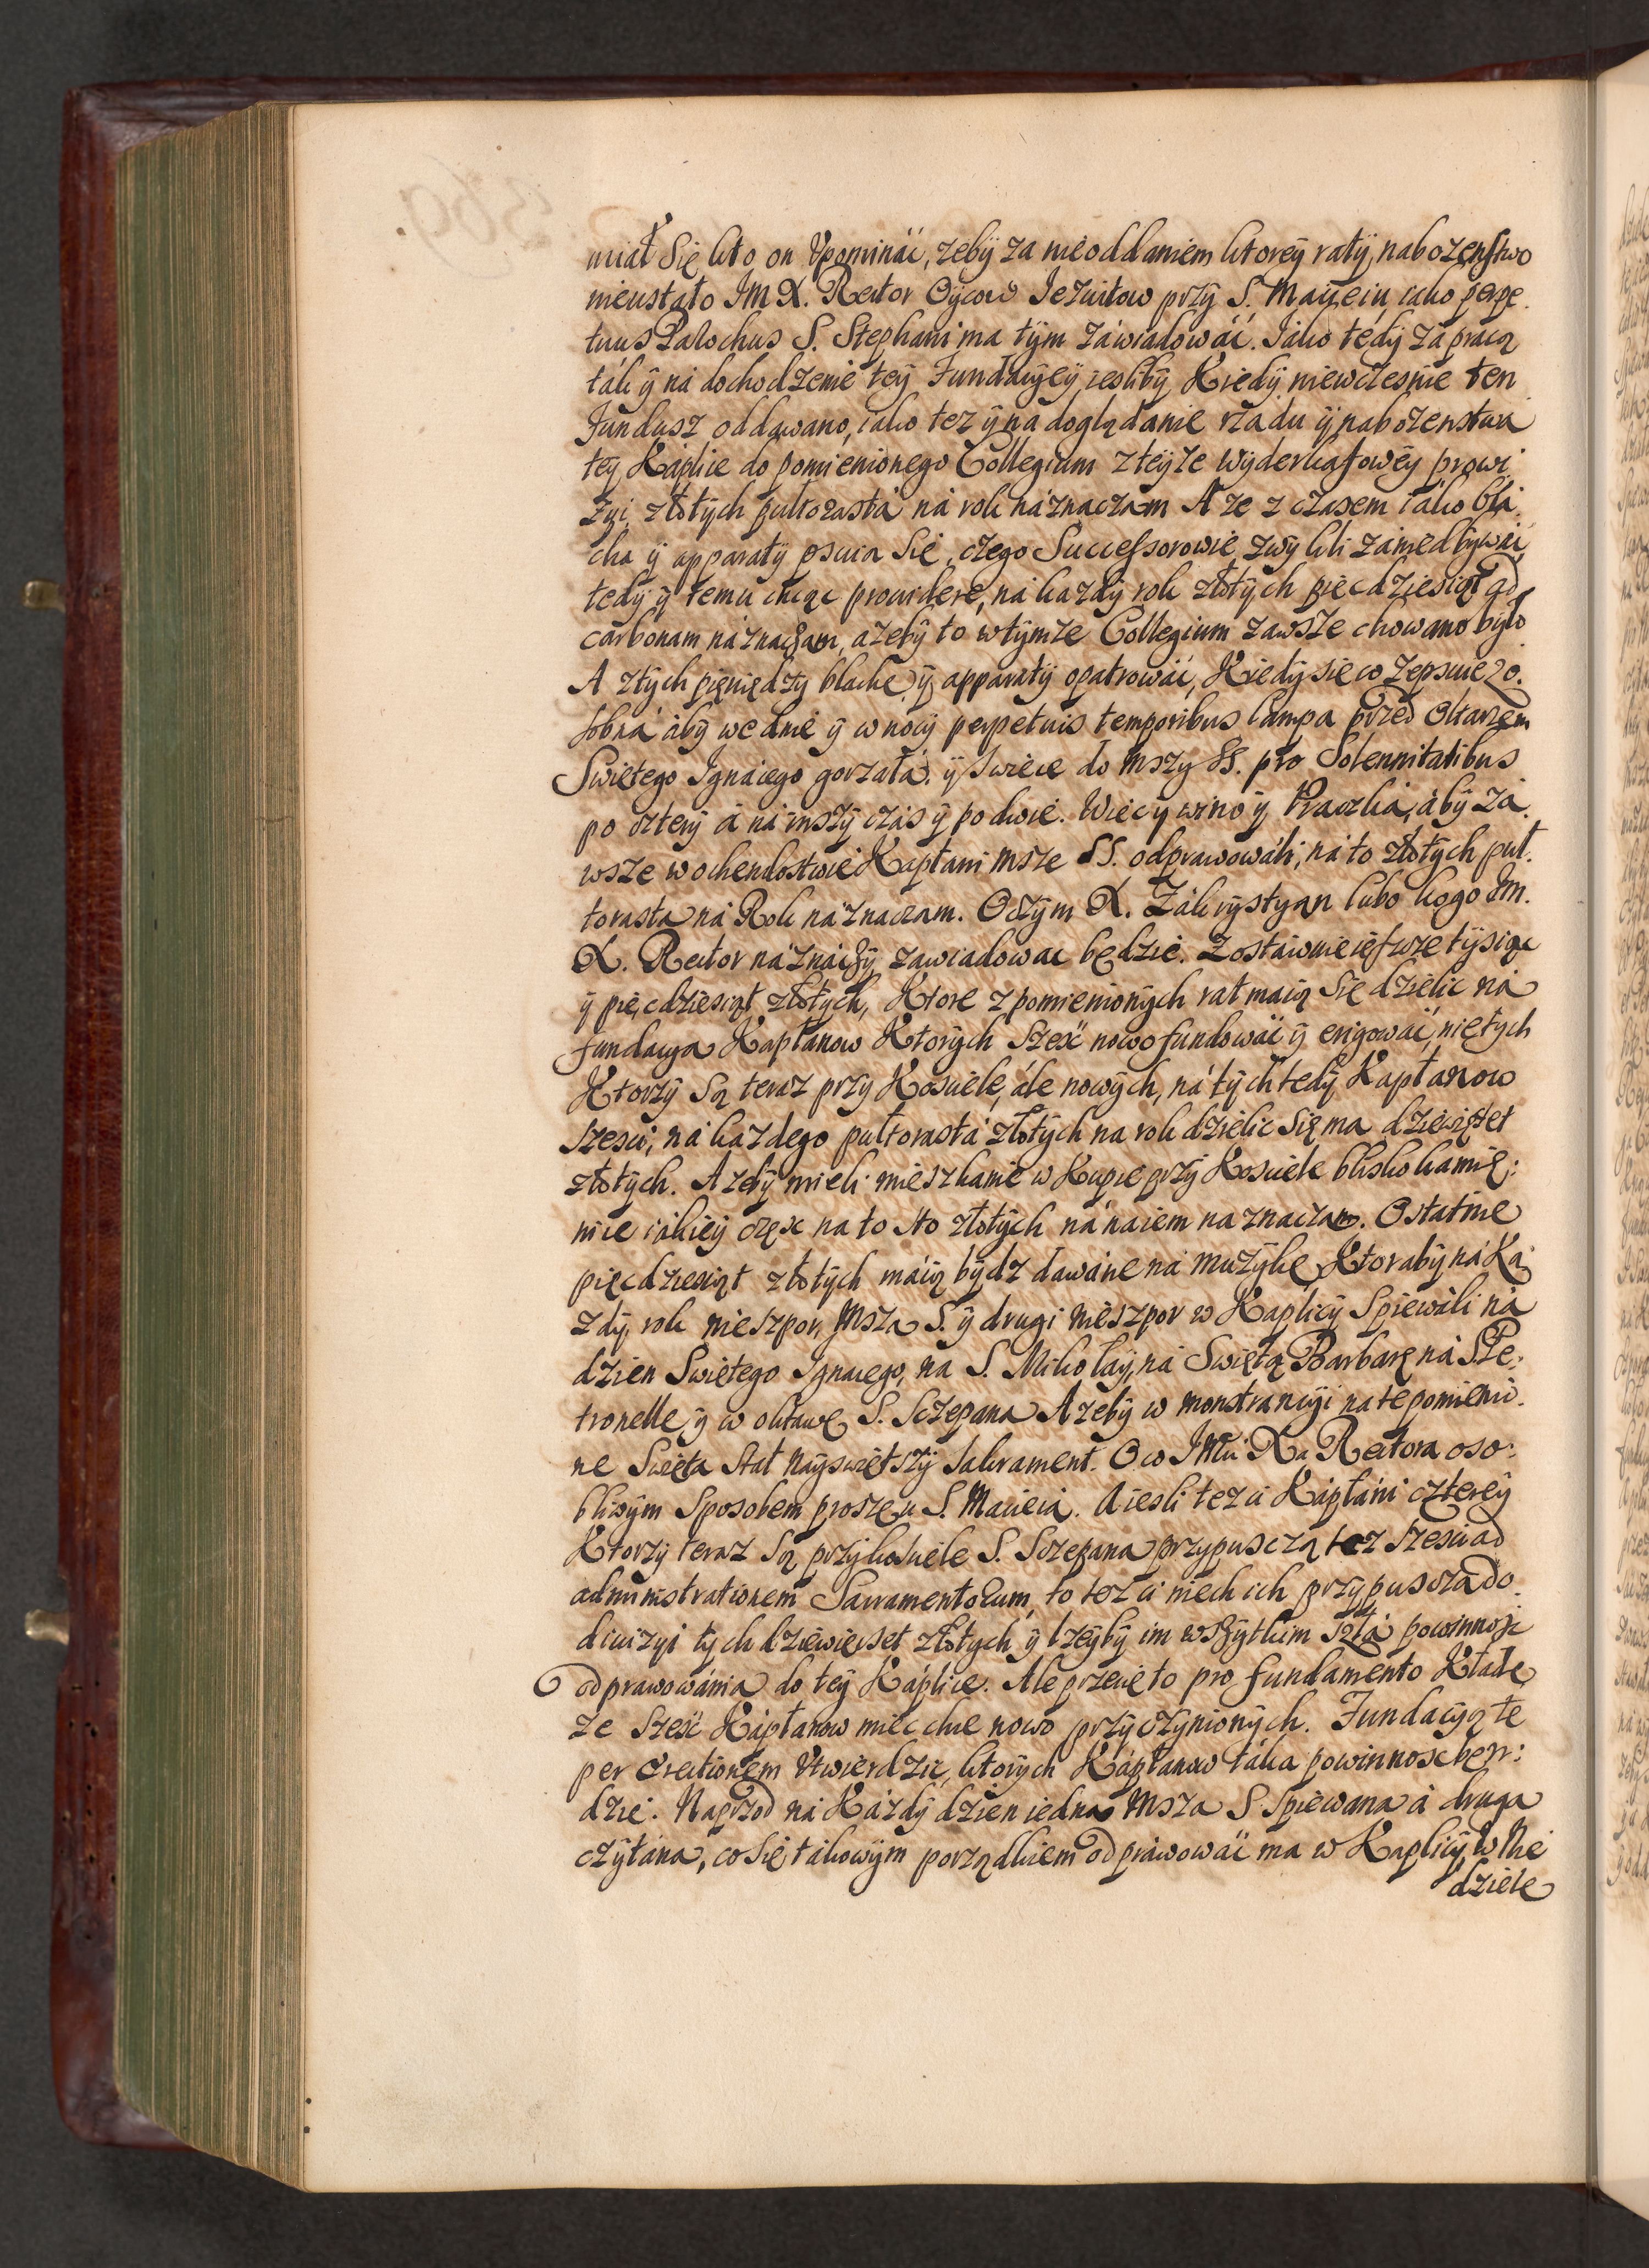 miał Się kto on Vpominác, zeby za nieoddaniem ktorey raty, nabozenstwo
nieustało IM X. Rector Oycow Iezuitow przy S. Macieiu iako perpe
tuus Parochus S. Stephani ma tym záwiadowác. Iáko tedy zá pracą
ták y ná dochodzenie tey Fundacyey iesliby Kiedy niewczesnie ten
Fundusz oddawano, iako tez y na doglądanie rządu y nabozenstwa
tey Kaplice do pomienionego Collegium z teyze wyderkafowey prowi
zyi złotych pułtorasta ná rok náznaczam A ze z czasem iáko blá
cha y apparaty psuią Się, czego Successorowie zwykli zaniedbywác,
tedy y temu chcąc prouidere, ná kazdy rok złotych pięcdziesiąt ad
carbonam náznaczam, azeby to w tymze Collegium zawsze chowano było
A z tych pięniędzy blachę y apparaty opatrowác, Kiedy się co zepsuie zo.
sobná áby we dnie y w nocy perpetuis temporibus lámpa przed Ołtarzem
Swiętego Ignácego gorzáła. y swiece do Mszy SS. pro Solennitatibus
po cztery á ná inszy czás y po dwie. Więc y wino y Praczka, áby zá
wsze wochendostwie Kapłani Msze SS. odprawowáli, ná to złotych puł.
torasta ná Rok náznaczam. O czym X. Zákrystyan lubo kogo Im.
X. Rector náznáczy zawiadowac będzie. Zostáwuie ieszcze tysiąc
y pięcdziesiąt złotych, Ktore z pomienionych rat maią Się dzielic ná
fundacya Kapłanow Ktorych Szesć nowo fundowác y erigowác, nie tych
Ktorzy Są teraz przy Kosciele, ále nowych, ná tych tedy Kapłanow
szesci, ná kazdego pułtorastá złotych na rok dzielic Się ma dziewięset
złotych. A zeby mieli mieszkanie w Kupie przy Kosciele blisko kamię:
nice iákiey częsc na to sto złotych ná naiem naznaczam. Ostatnie
pięcdziesiąt złotych máią bydz dawáne ná muzykę Ktoraby ná Ká
zdy rok nieszpor, Msza S. y drugi nieszpor w Kaplicy Spiewáli ná
dzien Swiętego Ignacego, na S. Mikołay, ná Swiętą Barbarę ná S. Pe:
tronelle y w oktawę S. Sczepana A zeby w monstrancyi na te pomienio.
ne Swięta Stał Nayswiętszy Sakrament. O co IMci Xa Rectora oso:
bliwym Sposobem proszę u S. Macieiá. A iesli tez ci Kápłáni czterey
Ktorzy teraz Są przy kosciele S. Sczepana przypusczą tez szesciu ad
administrationem Sacramentorum, to tez ci niech ich przypuszczą do
diuizyi tych dziewięset złotych y lzeyby im wszytkim szłá powinnosc
odprawowánia do tey Káplice. Ale przecię to pro fundamento Kładę,
ze szesć Kápłanow miec chcę nowo przyczynionych. Fundacyą tę
per erectionem Vtwierdzić, ktorych Kápłanow táka powinnosc bę:
dzie. Naprzod ná Kázdy dzien iedna Msza S. spiewana á druga
czytána, co Się tákowym porządkiem odpráwowác ma w Kaplicy, w Nie
dziele